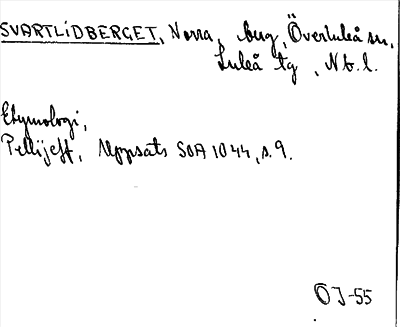 SVARTLIDBERGET, Norra, berg, Överluleå sn,
Luleå tg, Nb. l.
Etymologi,
Pellijeff, Uppsats SOA 1044, s. 9.
ÖJ-55